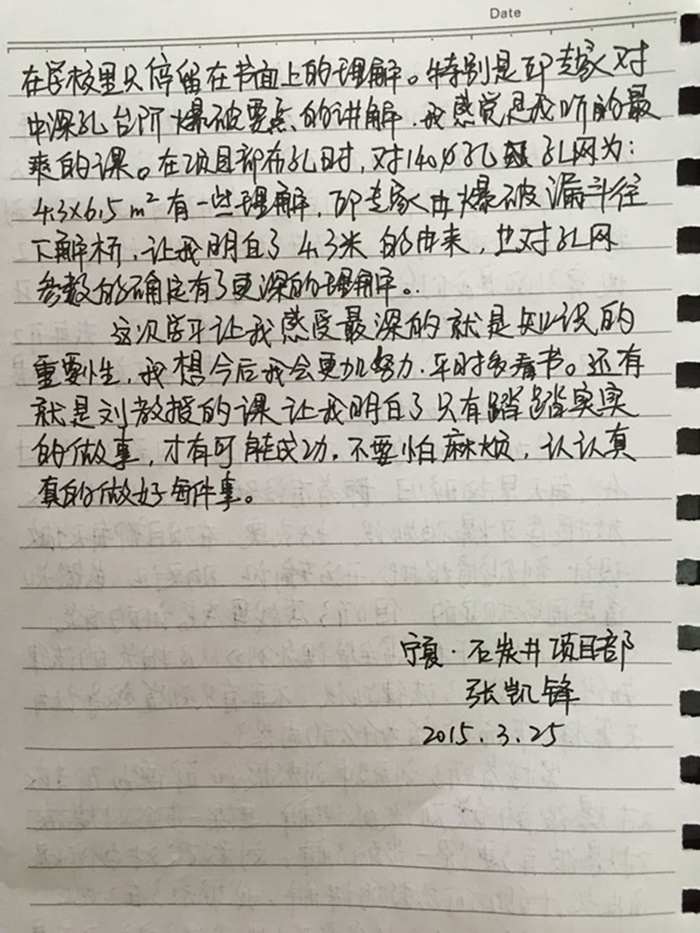 Date
在学校里只停留在书面上的理解。特别是邱专家对
中深孔台阶爆破要点的讲解，我感觉是我听的最
爽的课。在项目部布孔时，对140∅孔 孔网为：
4.3×6.5m²有一些理解，邱专家由爆破漏斗往
下解析，让我明白了4.3米的由来，也对孔网
参数的确定有了更深的理解。
这次学习让我感受最深的就是知识的
重要性，我想今后我会更加努力，平时多看书。还有
就是刘教授的课让我明白了只有踏踏实实
的做事，才有可能成功，不要怕麻烦，认认真
真的做好每件事。
宁夏·石炭井项目部
张凯锋
2015.3.25